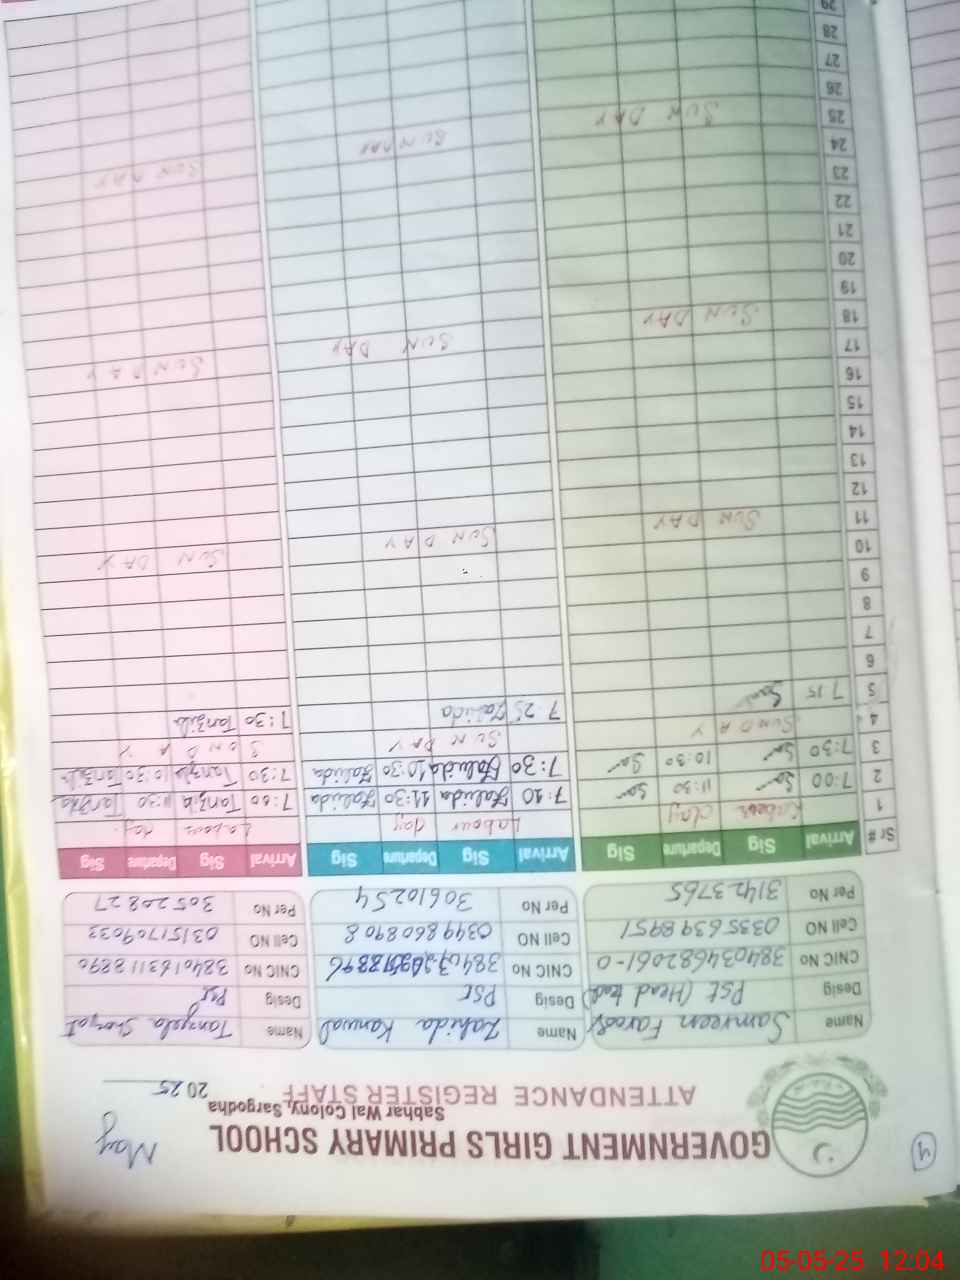 4
GOVERNMENT GIRLS PRIMARY SCHOOL
May
Sabhar Wal Colony, Sargodha
ATTENDANCE REGISTER STAFF
2025
Name Samreen Name Zahida Kanwal Name Tanzela
Desig Pst (Head Desig Pst Desig Pst
CNIC No 384034682061-0 CNIC No CNIC No 3840163118890
Cell NO 03356398951 Cell NO 03498608908 Cell NO 03151709033
Per No 31423765 Per No 30610254 Per No 30520827
Sr# Arrival Sig Departure Sig Arrival Sig Departure Sig Arrival Sig Departure Sig
1 Labour day Labour day Labour day
2 7:00 Sar 11:30 Sar 7:10 Zahida 11:30 Zahida 7:00 Tanzila 11:30 Tanzila
3 7:30 Sar 10:30 Sar 7:30 Zahida 10:30 Zahida 7:30 Tanzila 10:30 Tanzila
4 SUNDAY SUN DAY SUNDAY
5 7 15 Sar 7:25 Zahida 7:30 Tanzila
6
7
8
9
10
11 SUN DAY SUN DAY SUN DAY
12
13
14
15
16
17
18 SUN DAY SUN DAY SUN DAY
19
20
21
22
23
24
25 SUN DAY SUNDAY SUN DAY
26
27
28
29
05-05-25 12:04